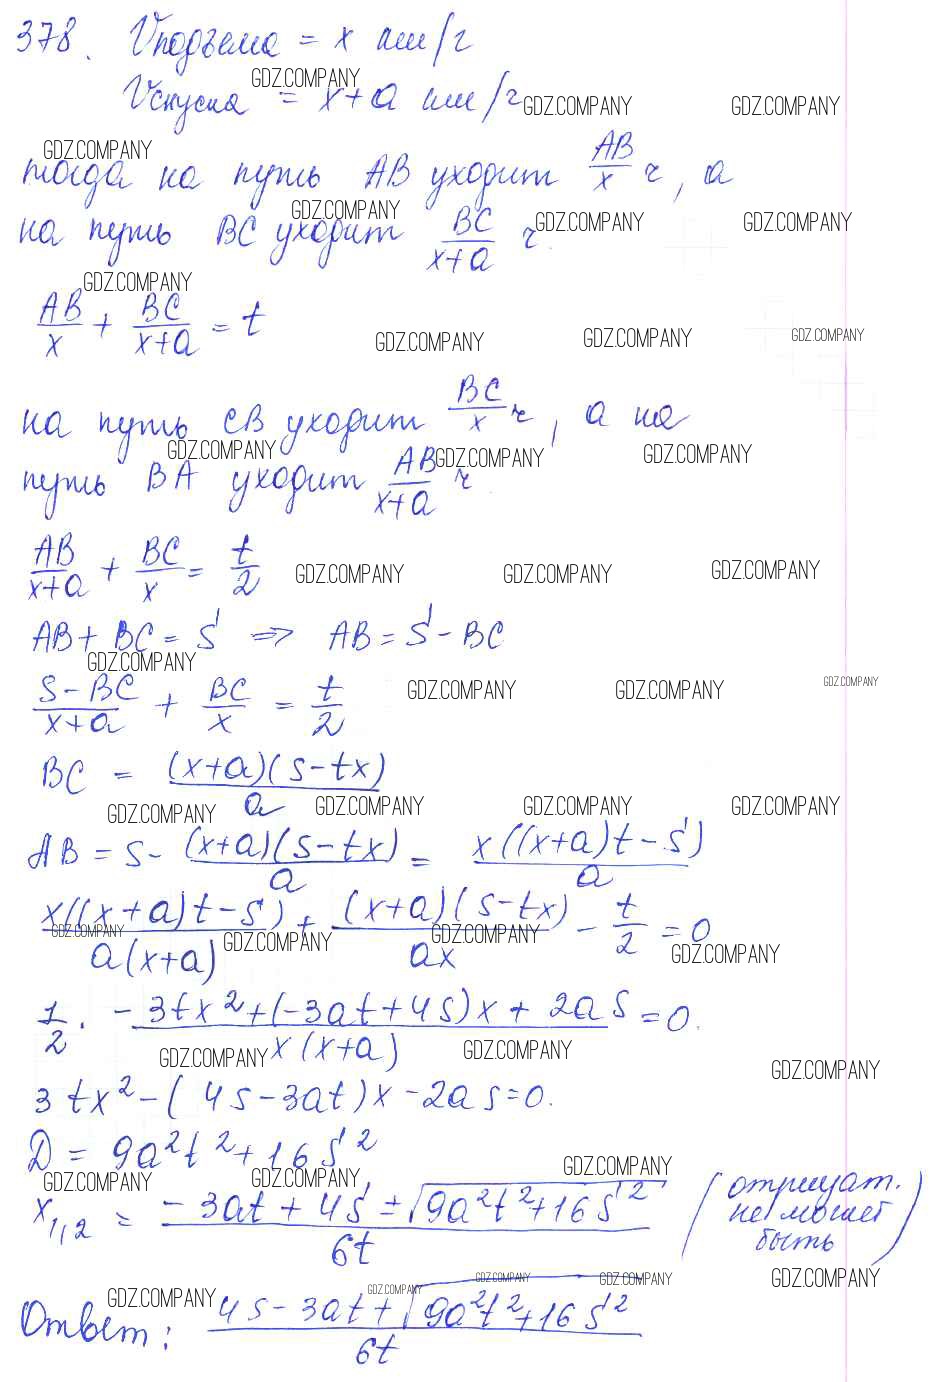 378. Vподъема = x км/ч
GDZ.COMPANY
Vспуска = x+a км/ч
GDZ.COMPANY GDZ.COMPANY
GDZ.COMPANY
тогда на путь AB уходит AB/x ч, а
GDZ.COMPANY GDZ.COMPANY GDZ.COMPANY
на путь BC уходит BC/(x+a) ч.
GDZ.COMPANY
AB/x + BC/(x+a) = t
GDZ.COMPANY GDZ.COMPANY GDZ.COMPANY
на путь CB уходит BC/x ч, а на
GDZ.COMPANY GDZ.COMPANY GDZ.COMPANY
путь BA уходит AB/(x+a) ч.
AB/(x+a) + BC/x = t/2
GDZ.COMPANY GDZ.COMPANY GDZ.COMPANY
AB + BC = S ⇒ AB = S - BC
GDZ.COMPANY
(S-BC)/(x+a) + BC/x = t/2
GDZ.COMPANY GDZ.COMPANY GDZ.COMPANY
BC = (x+a)(s-tx)/a
GDZ.COMPANY GDZ.COMPANY GDZ.COMPANY GDZ.COMPANY
AB = s - (x+a)(s-tx)/a = x((x+a)t-s)/a
x((x+a)t-s)/(a(x+a)) + (x+a)(s-tx)/(ax) - t/2 = 0
GDZ.COMPANY GDZ.COMPANY GDZ.COMPANY GDZ.COMPANY
1/2 · (-3tx²+(-3at+4s)x+2as)/(x(x+a)) = 0.
GDZ.COMPANY GDZ.COMPANY GDZ.COMPANY
3tx² - (4s-3at)x - 2as = 0.
D = 9a²t² + 16s²
GDZ.COMPANY GDZ.COMPANY GDZ.COMPANY
x1,2 = (-3at+4s±√(9a²t²+16s²))/(6t) (отрицат. не может быть)
GDZ.COMPANY GDZ.COMPANY GDZ.COMPANY GDZ.COMPANY GDZ.COMPANY
Ответ: (4s-3at+√(9a²t²+16s²))/(6t)